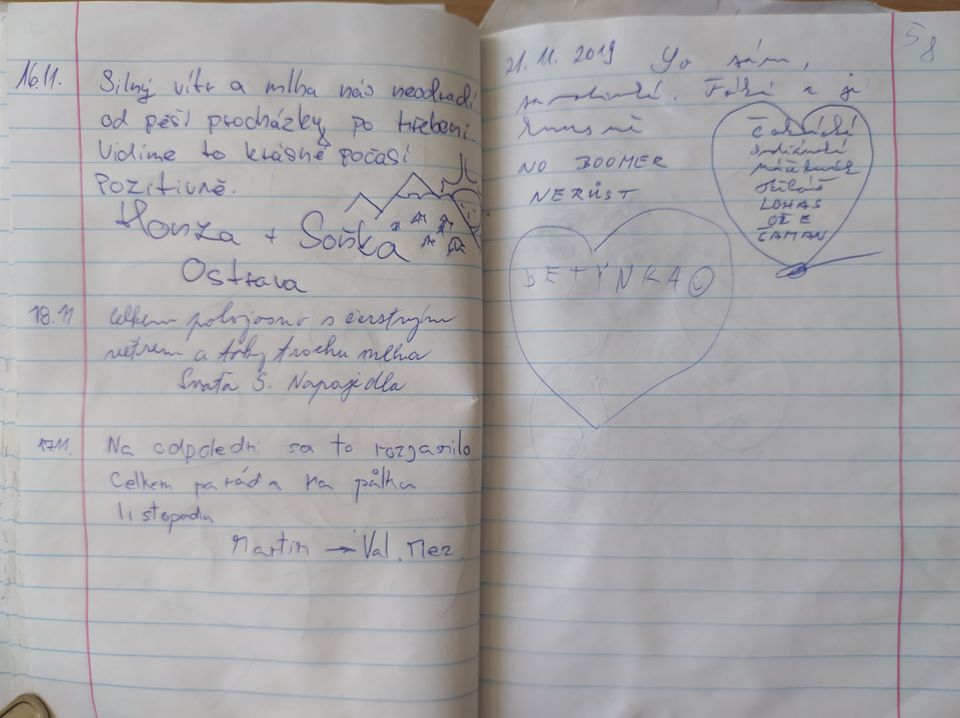 16.11. Silný vítr a mlha nás neodradí
od pěší procházky po hřebeni.
Vidíme to krásné počasí
pozitivně.
Honza + Soňka
Ostrava
18.11 Celkem polojasno s čerstvým
větrem a taky trochu mlha
Svaťa S. Napajedla
17.11. Na odpoledni sa to rozjasnilo
Celkem paráda na půlku
listopadu
Martin → Val. Mez.
58
21.11.2019 Yo sám,
samotinký. Fouká a je
hnusně
NO BOOMER
NERŮST
LOHAS
BETYNKA